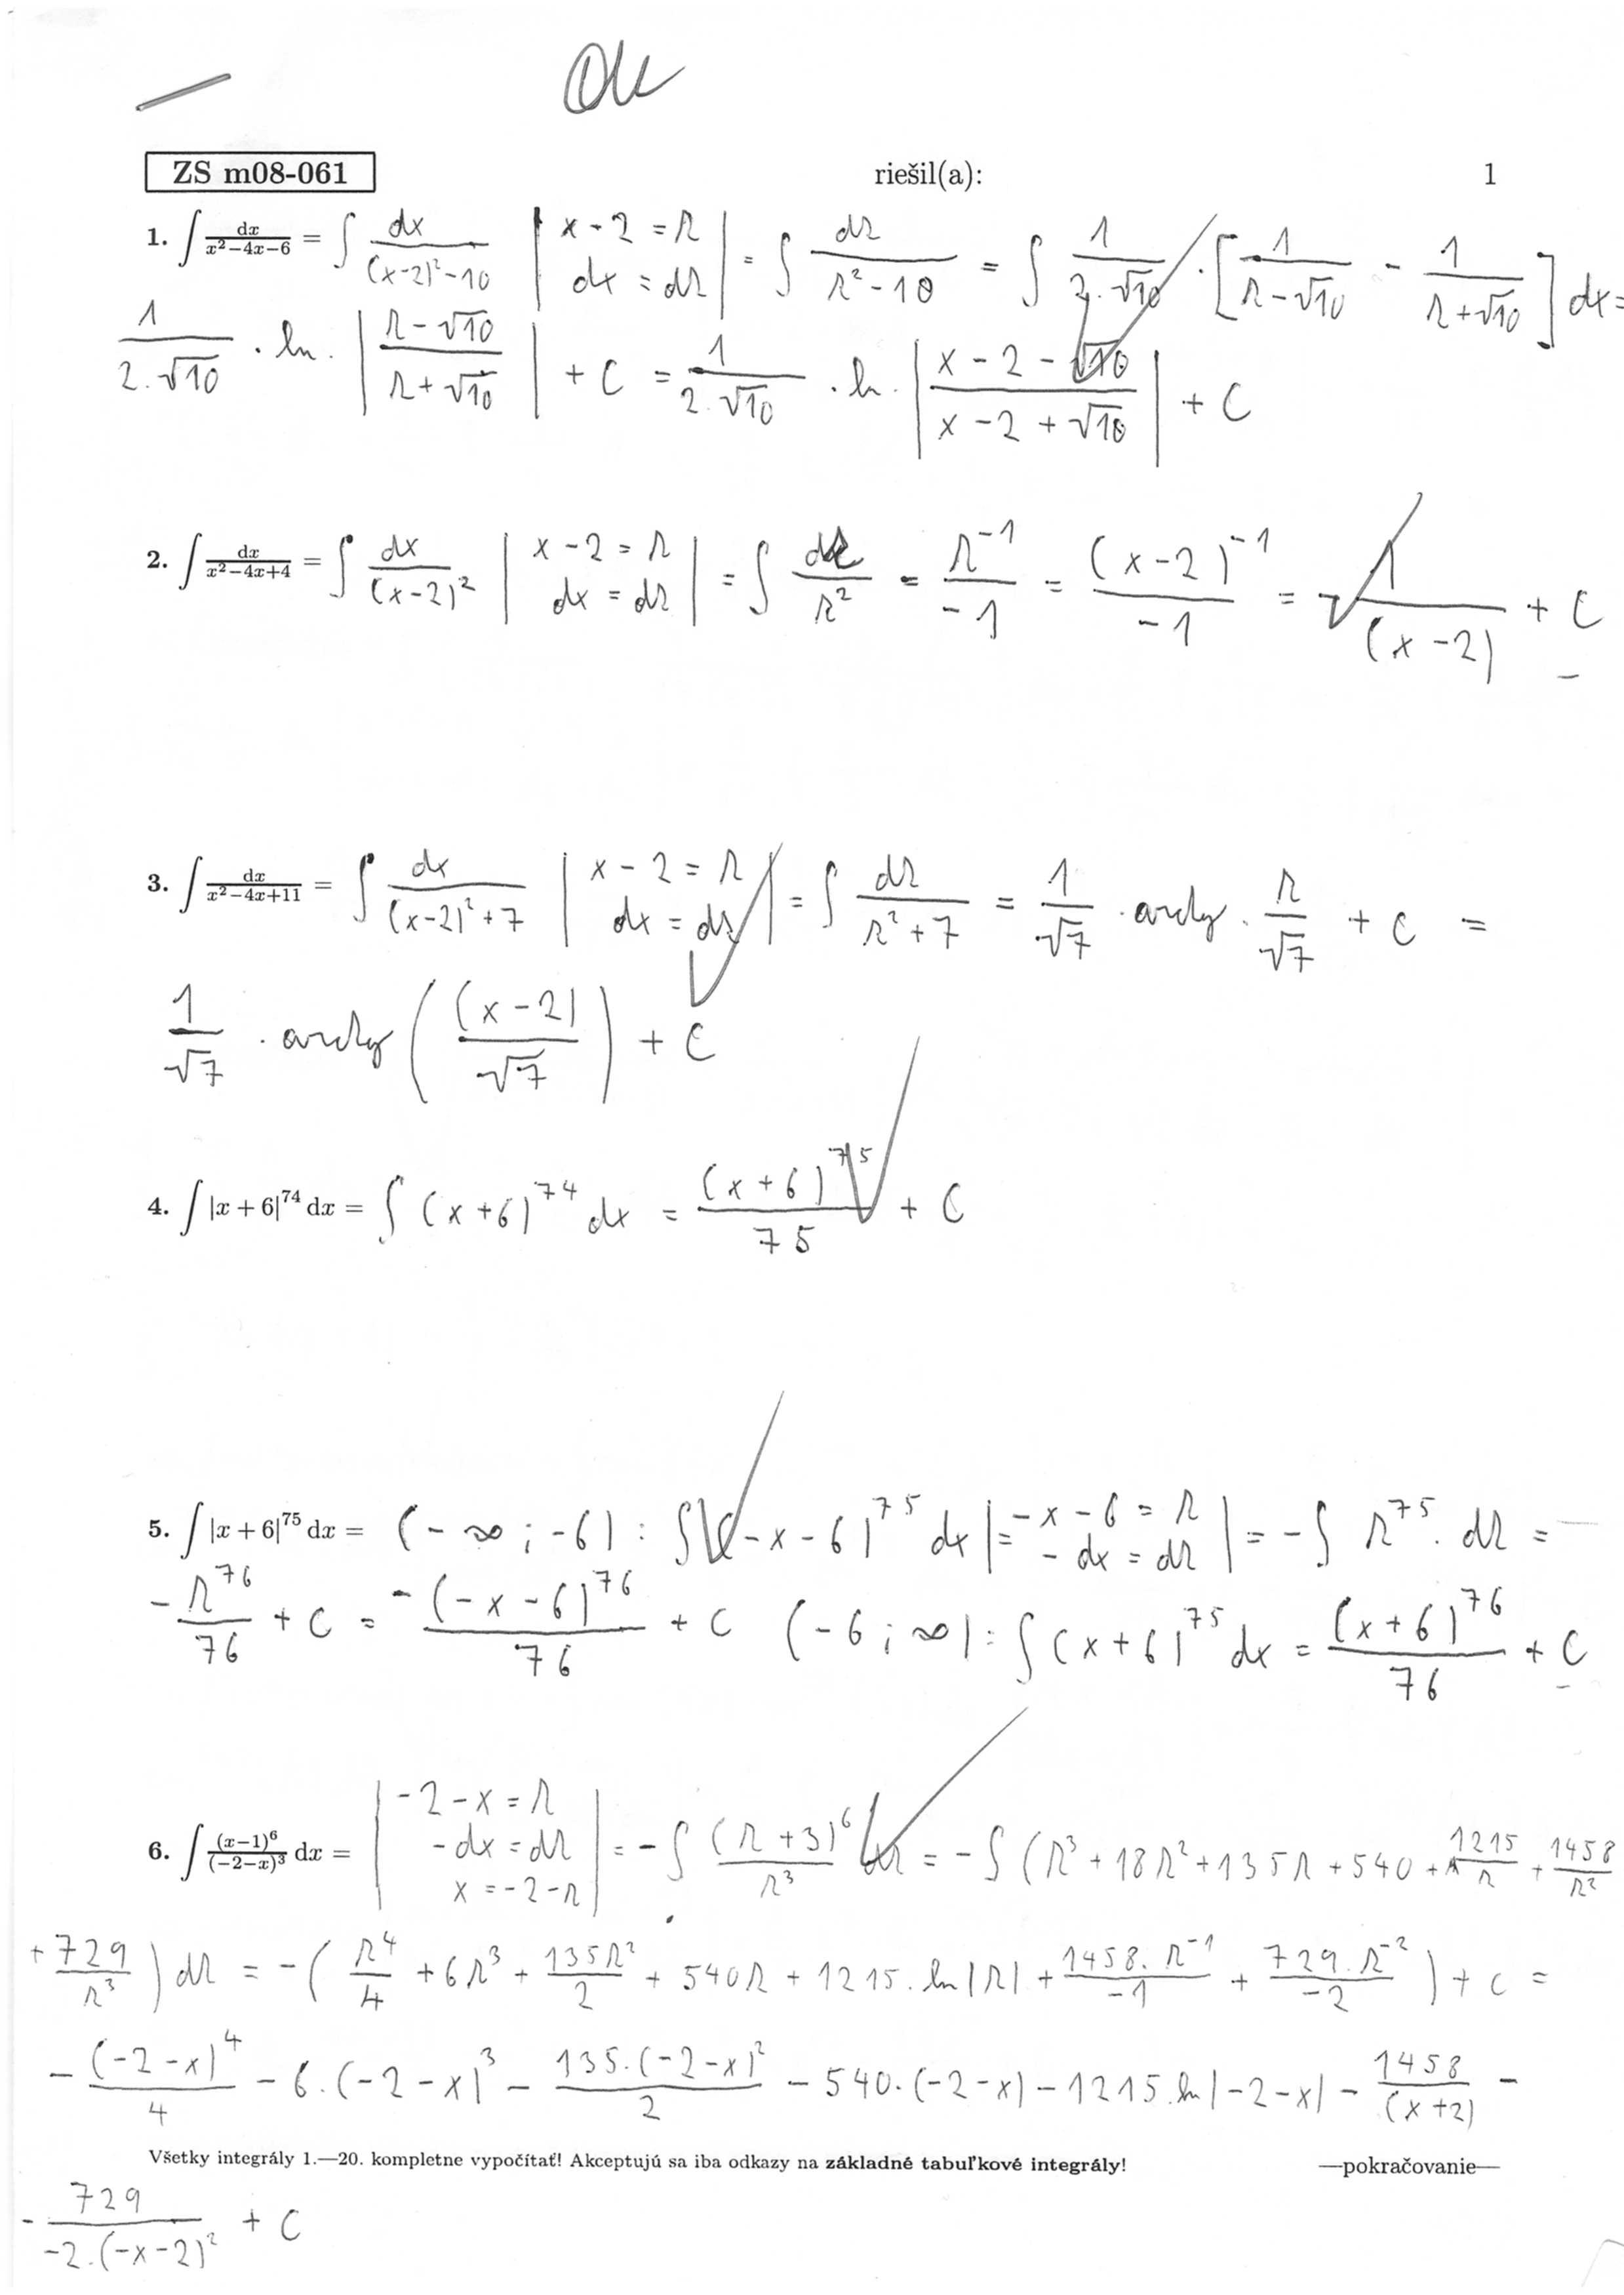 Ok
ZS m08-061 riešil(a): 1
1. ∫ dx/(x²−4x−6) = ∫ dx/((x-2)²-10) | x-2 = r | dx = dr | = ∫ dr/(r²-10) = ∫ 1/(2.√10) · [1/(r-√10) - 1/(r+√10)] dx =
1/(2.√10) . ln. |(r-√10)/(r+√10)| + C = 1/(2.√10) . ln. |(x-2-√10)/(x-2+√10)| + C
2. ∫ dx/(x²−4x+4) = ∫ dx/(x-2)² | x-2 = r | dx = dr | = ∫ dr/r² = r⁻¹/-1 = (x-2)⁻¹/-1 = - 1/(x-2) + C
3. ∫ dx/(x²−4x+11) = ∫ dx/((x-2)²+7) | x-2 = r | dx = dr | = ∫ dr/(r²+7) = 1/√7 . arctg . r/√7 + C =
1/√7 . arctg ((x-2)/√7) + C
4. ∫ |x + 6|⁷⁴ dx = ∫ (x+6)⁷⁴ dx = (x+6)⁷⁵/75 + C
5. ∫ |x + 6|⁷⁵ dx = (-∞; -6) : ∫ (-x-6)⁷⁵ dx |= -x-6 = r | -dx = dr | = -∫ r⁷⁵ . dr =
- r⁷⁶/76 + C = -(-x-6)⁷⁶/76 + C (-6; ∞) : ∫ (x+6)⁷⁵ dx = (x+6)⁷⁶/76 + C
6. ∫ (x−1)⁶/(−2−x)³ dx = | -2-x = r | -dx = dr | x = -2-r | = -∫ (r+3)⁶/r³ dr = -∫ (r³ + 18r² + 135r + 540 + 1215/r + 1458/r²
+ 729/r³) dr = -(r⁴/4 + 6r³ + 135r²/2 + 540r + 1215. ln|r| + 1458.r⁻¹/-1 + 729.r⁻²/-2) + c =
- (-2-x)⁴/4 - 6.(-2-x)³ - 135.(-2-x)²/2 - 540.(-2-x) - 1215.ln|-2-x| - 1458/(x+2) -
Všetky integrály 1.—20. kompletne vypočítať! Akceptujú sa iba odkazy na základné tabuľkové integrály! —pokračovanie—
- 729/(-2.(-x-2)²) + C